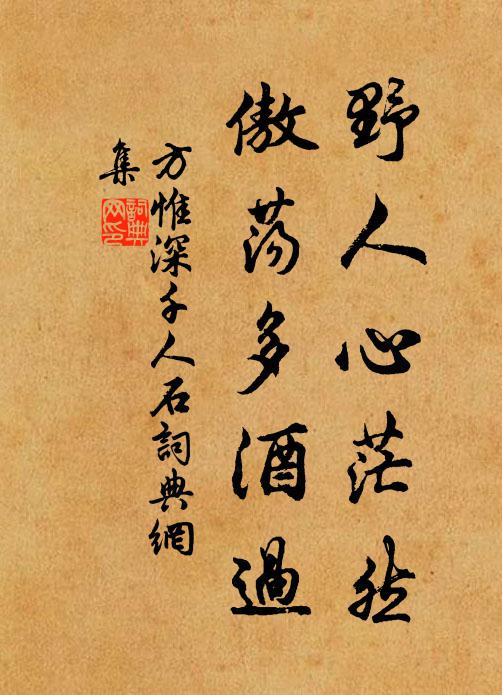 野人心茫然
傲蕩多酒過
方惟深千人石詞典網
集
詞典網印